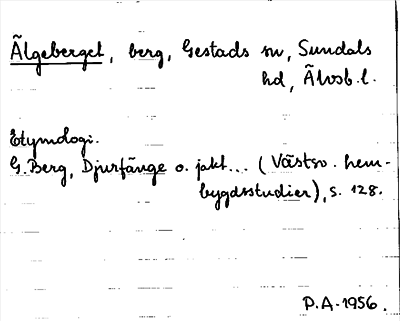 Älgeberget, berg, Gestads sn, Sundals
hd, Älvsb. l.
Etymologi.
G. Berg, Djurfänge o. jakt... (Västsv. hem-
bygdsstudier), s. 128.
P.A. 1956.